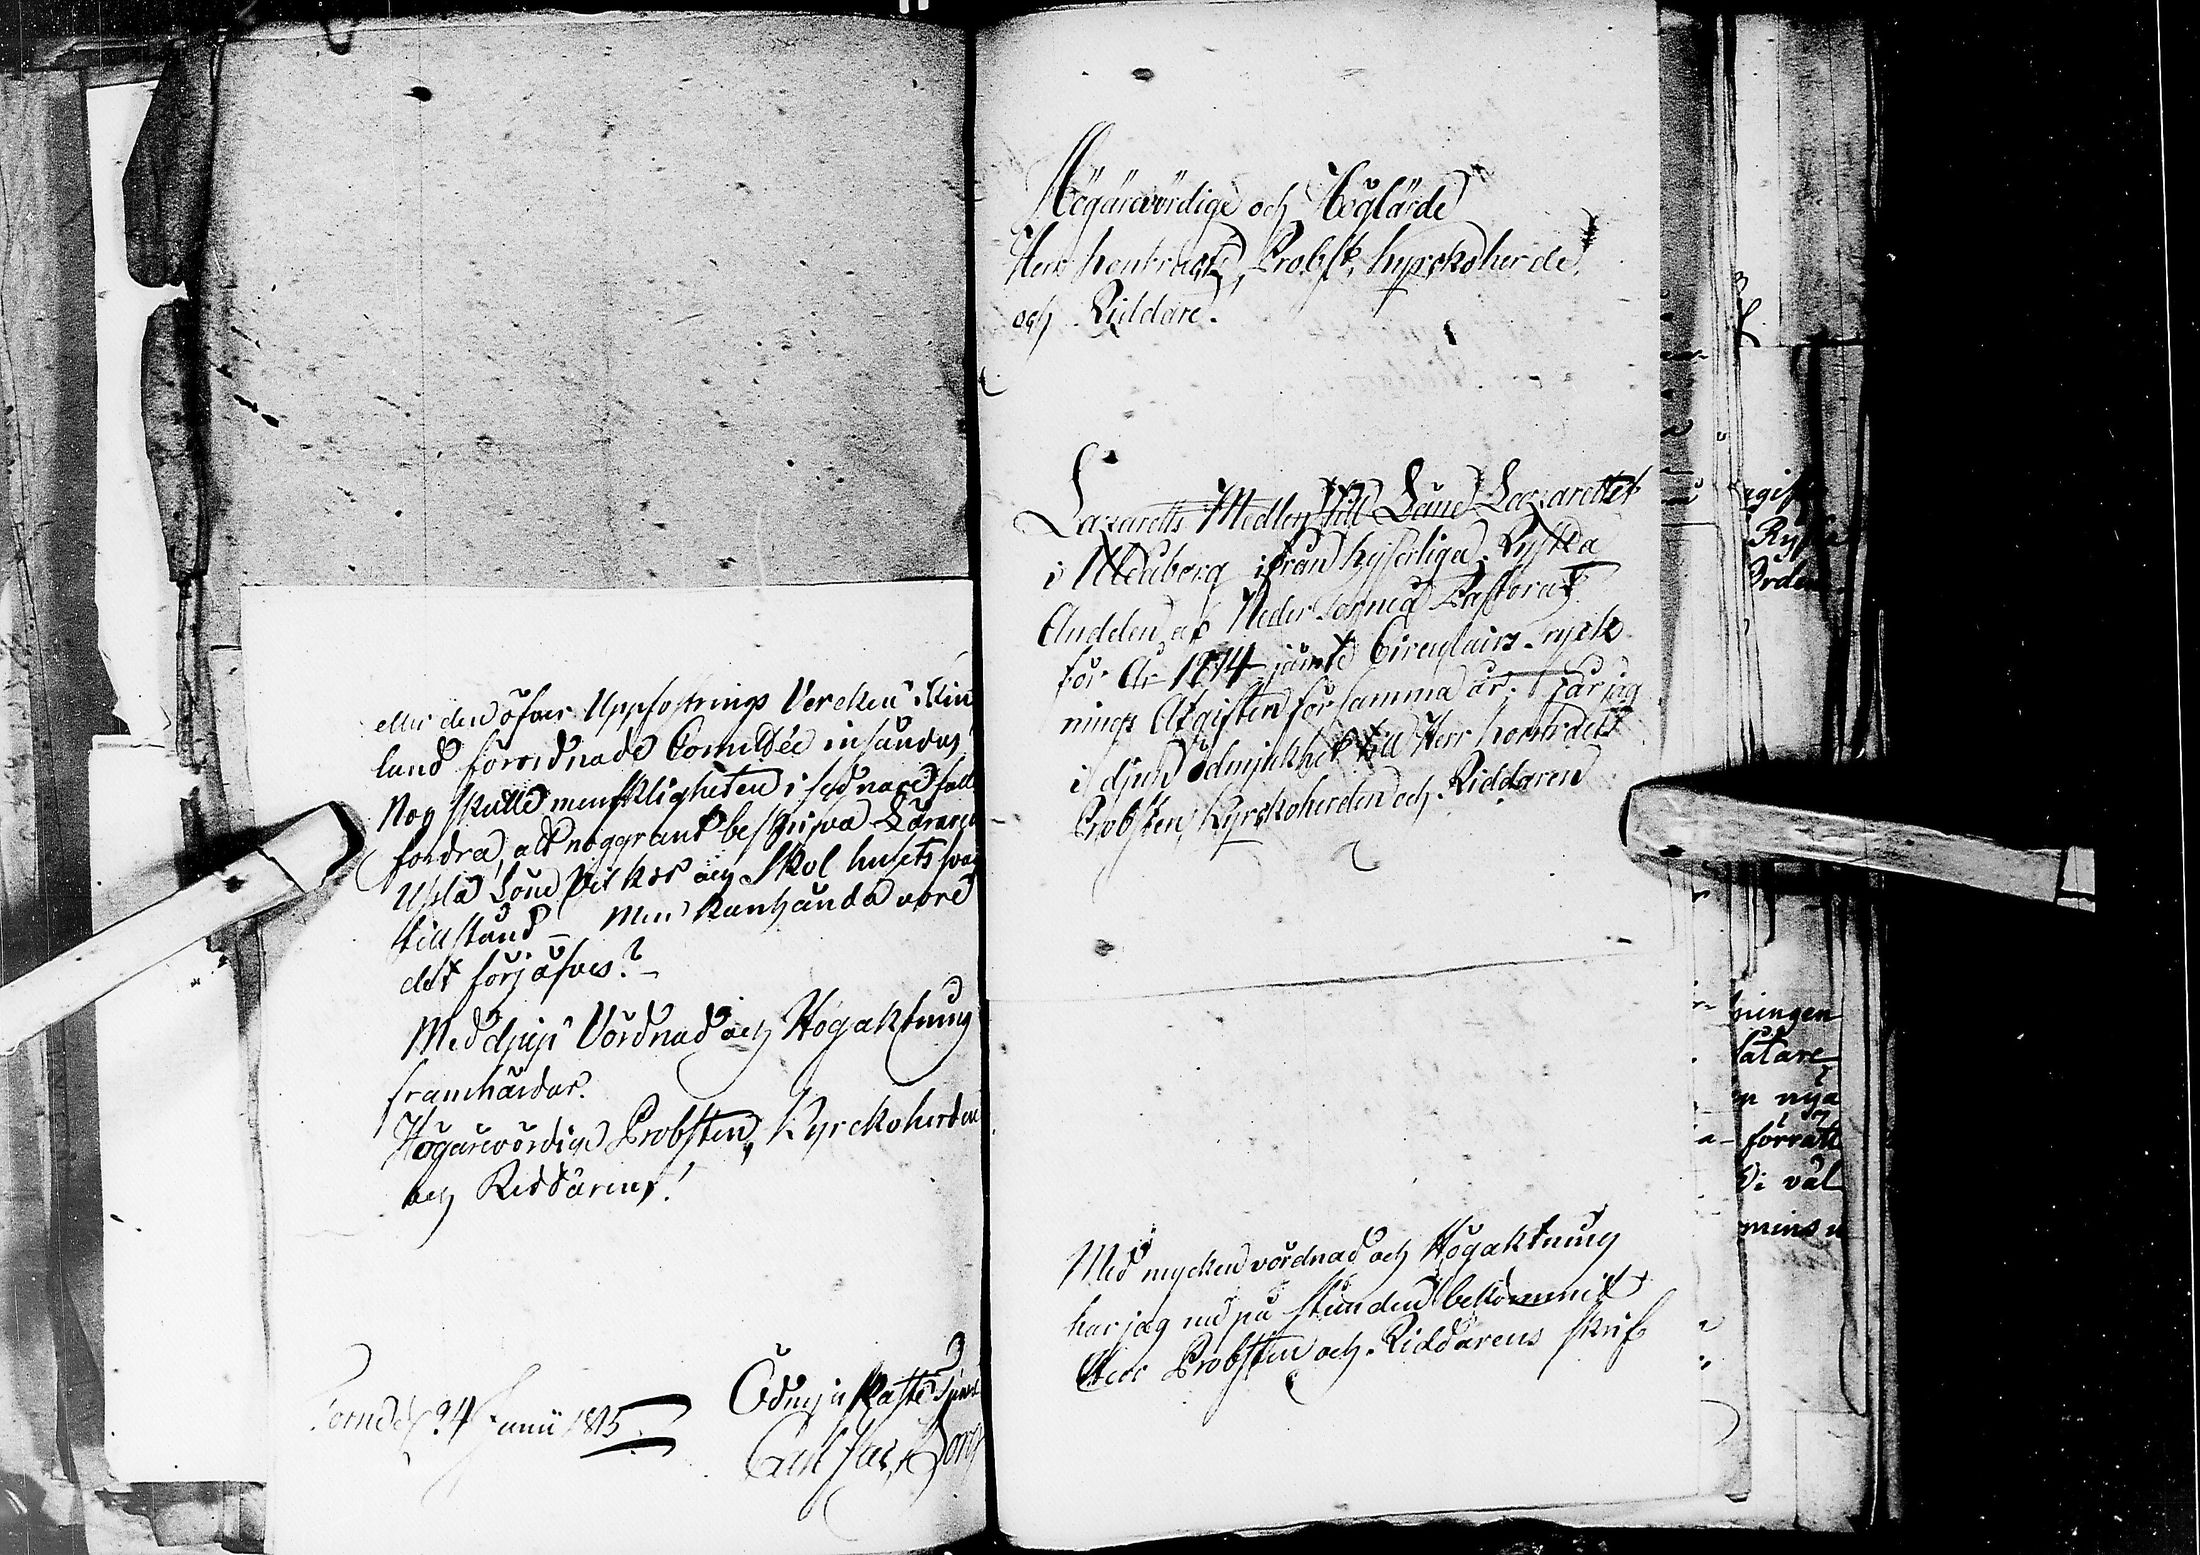 eller den öfver Uppfostrings Vercken i Fin
land förordnade Comitée insändas
Nog skulle menskligheten i sednare fall
fordra, att noggrant beskrifva Lärarens
Usla Löne Vilkor och Skol husets
tillstånd – Men kanhända vore
det förjäfves? –
Med djup Vördnad och Högaktning
framhärdar.
Högärevördige Probsten, Kyrckoherden
och Riddarens!
Torneå d. 24 Junii 1815
Ödmjukaste tjenare
Carl
Högärevördige och Höglärde
Herr Kontracts Probst, Kyrckoherde,
och Riddare.
Lazaretts Medlen till Läne Lazarettet
i Uleåborg ifrån Kejserliga Ryska
Andelen af Neder Torneå Pastorat
för År 1814 jämte Circulairs Tryck
nings Afgiften för samma år, får jag
i djup ödmjukhet till Herr Contracts
Probsten, Kyrckoherden och Riddaren
Med mycken vördnad och Högaktning
har jag nu på stunden bekommit
Herr Probsten och Riddarens skrif
Ryska
Orden
ningen
låtare
nya
förrätt
Di väl